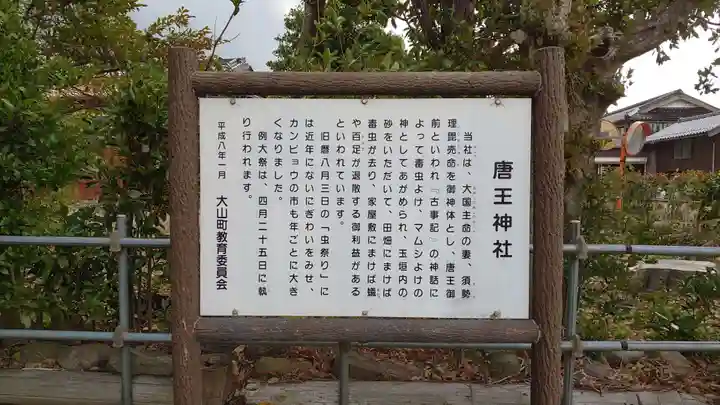 唐王神社
当社は、大国主命の妻、須勢
理毘売命を御神体とし、唐王御
前といわれ『古事記』の神話に
よって毒虫よけ、マムシよけの
神としてあがめられ、玉垣内の
砂をいただいて、田畑にまけば
毒虫が去り、家屋敷にまけば蟻
や百足が退散する御利益がある
といわれています。
旧暦八月三日の「虫祭り」に
は近年にないにぎわいをみせ、
カンピョウの市も年ごとに大き
くなりました。
例大祭は、四月二十五日に執
り行われます。
平成八年一月 大山町教育委員会